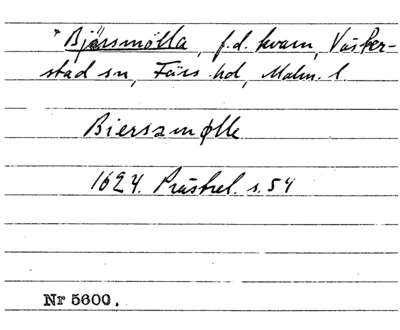 * Bjärsmölla, f.d. kvarn, Väsker-
stad sn, Färs hd, Malm. l
Bierszmølle
1624. Prästrel. s. 54
Nr 5600.